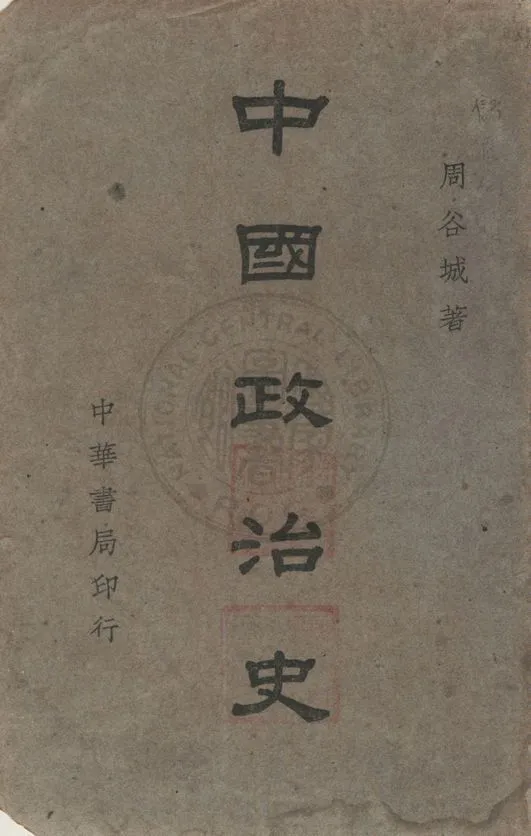 周谷城著
中國政治史
中華書局印行
NATIONAL CENTRAL LIBRARY